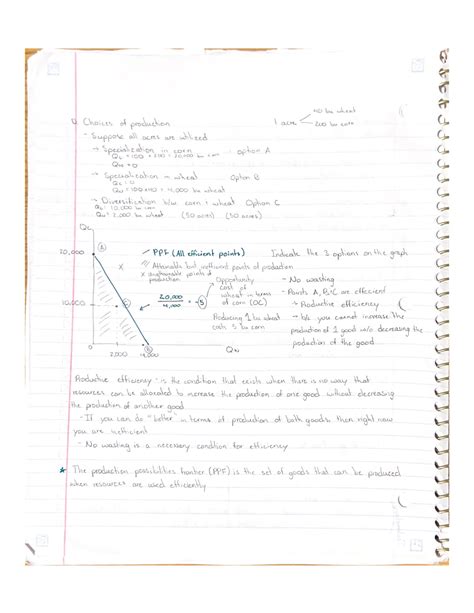 Choices of production
40 bu wheat
1 acre
200 bu corn
- Suppose all acres are utilized
→ Specialization in corn Option A
Qc = 100 × 200 = 20,000 bu corn
Qw = 0
→ Specialization in wheat Option B
Qc = 0
Qw = 100×40 = 4,000 bu wheat
→ Diversification b/w corn & wheat Option C
Qw = 2,000 bu wheat (50 acres) (50 acres)
Qc
20,000
10,000
2,000
4,000
Qw
A
C
B
PPF (All efficient points)
Indicate the 3 options on the graph
/// Attainable but inefficient points of production
x unattainable points of production
20,000
4,000
= 5
Opportunity cost of wheat in terms of corn (OC)
Producing 1 bu wheat
costs 5 bu corn
- No wasting
- Points A, B, C are efficient
↳ Productive efficiency
↳ b/c you cannot increase the
production of 1 good w/o decreasing the
production of the good
Productive efficiency - is the condition that exists when there is no way that
resources can be allocated to increase the production of one good without decreasing
the production of another good
- If you can do "better" in terms of production of both goods, then right now
you are inefficient
- No wasting is a necessary condition for efficiency
* The production possibilities frontier (PPF) is the set of goods that can be produced
when resources are used efficiently